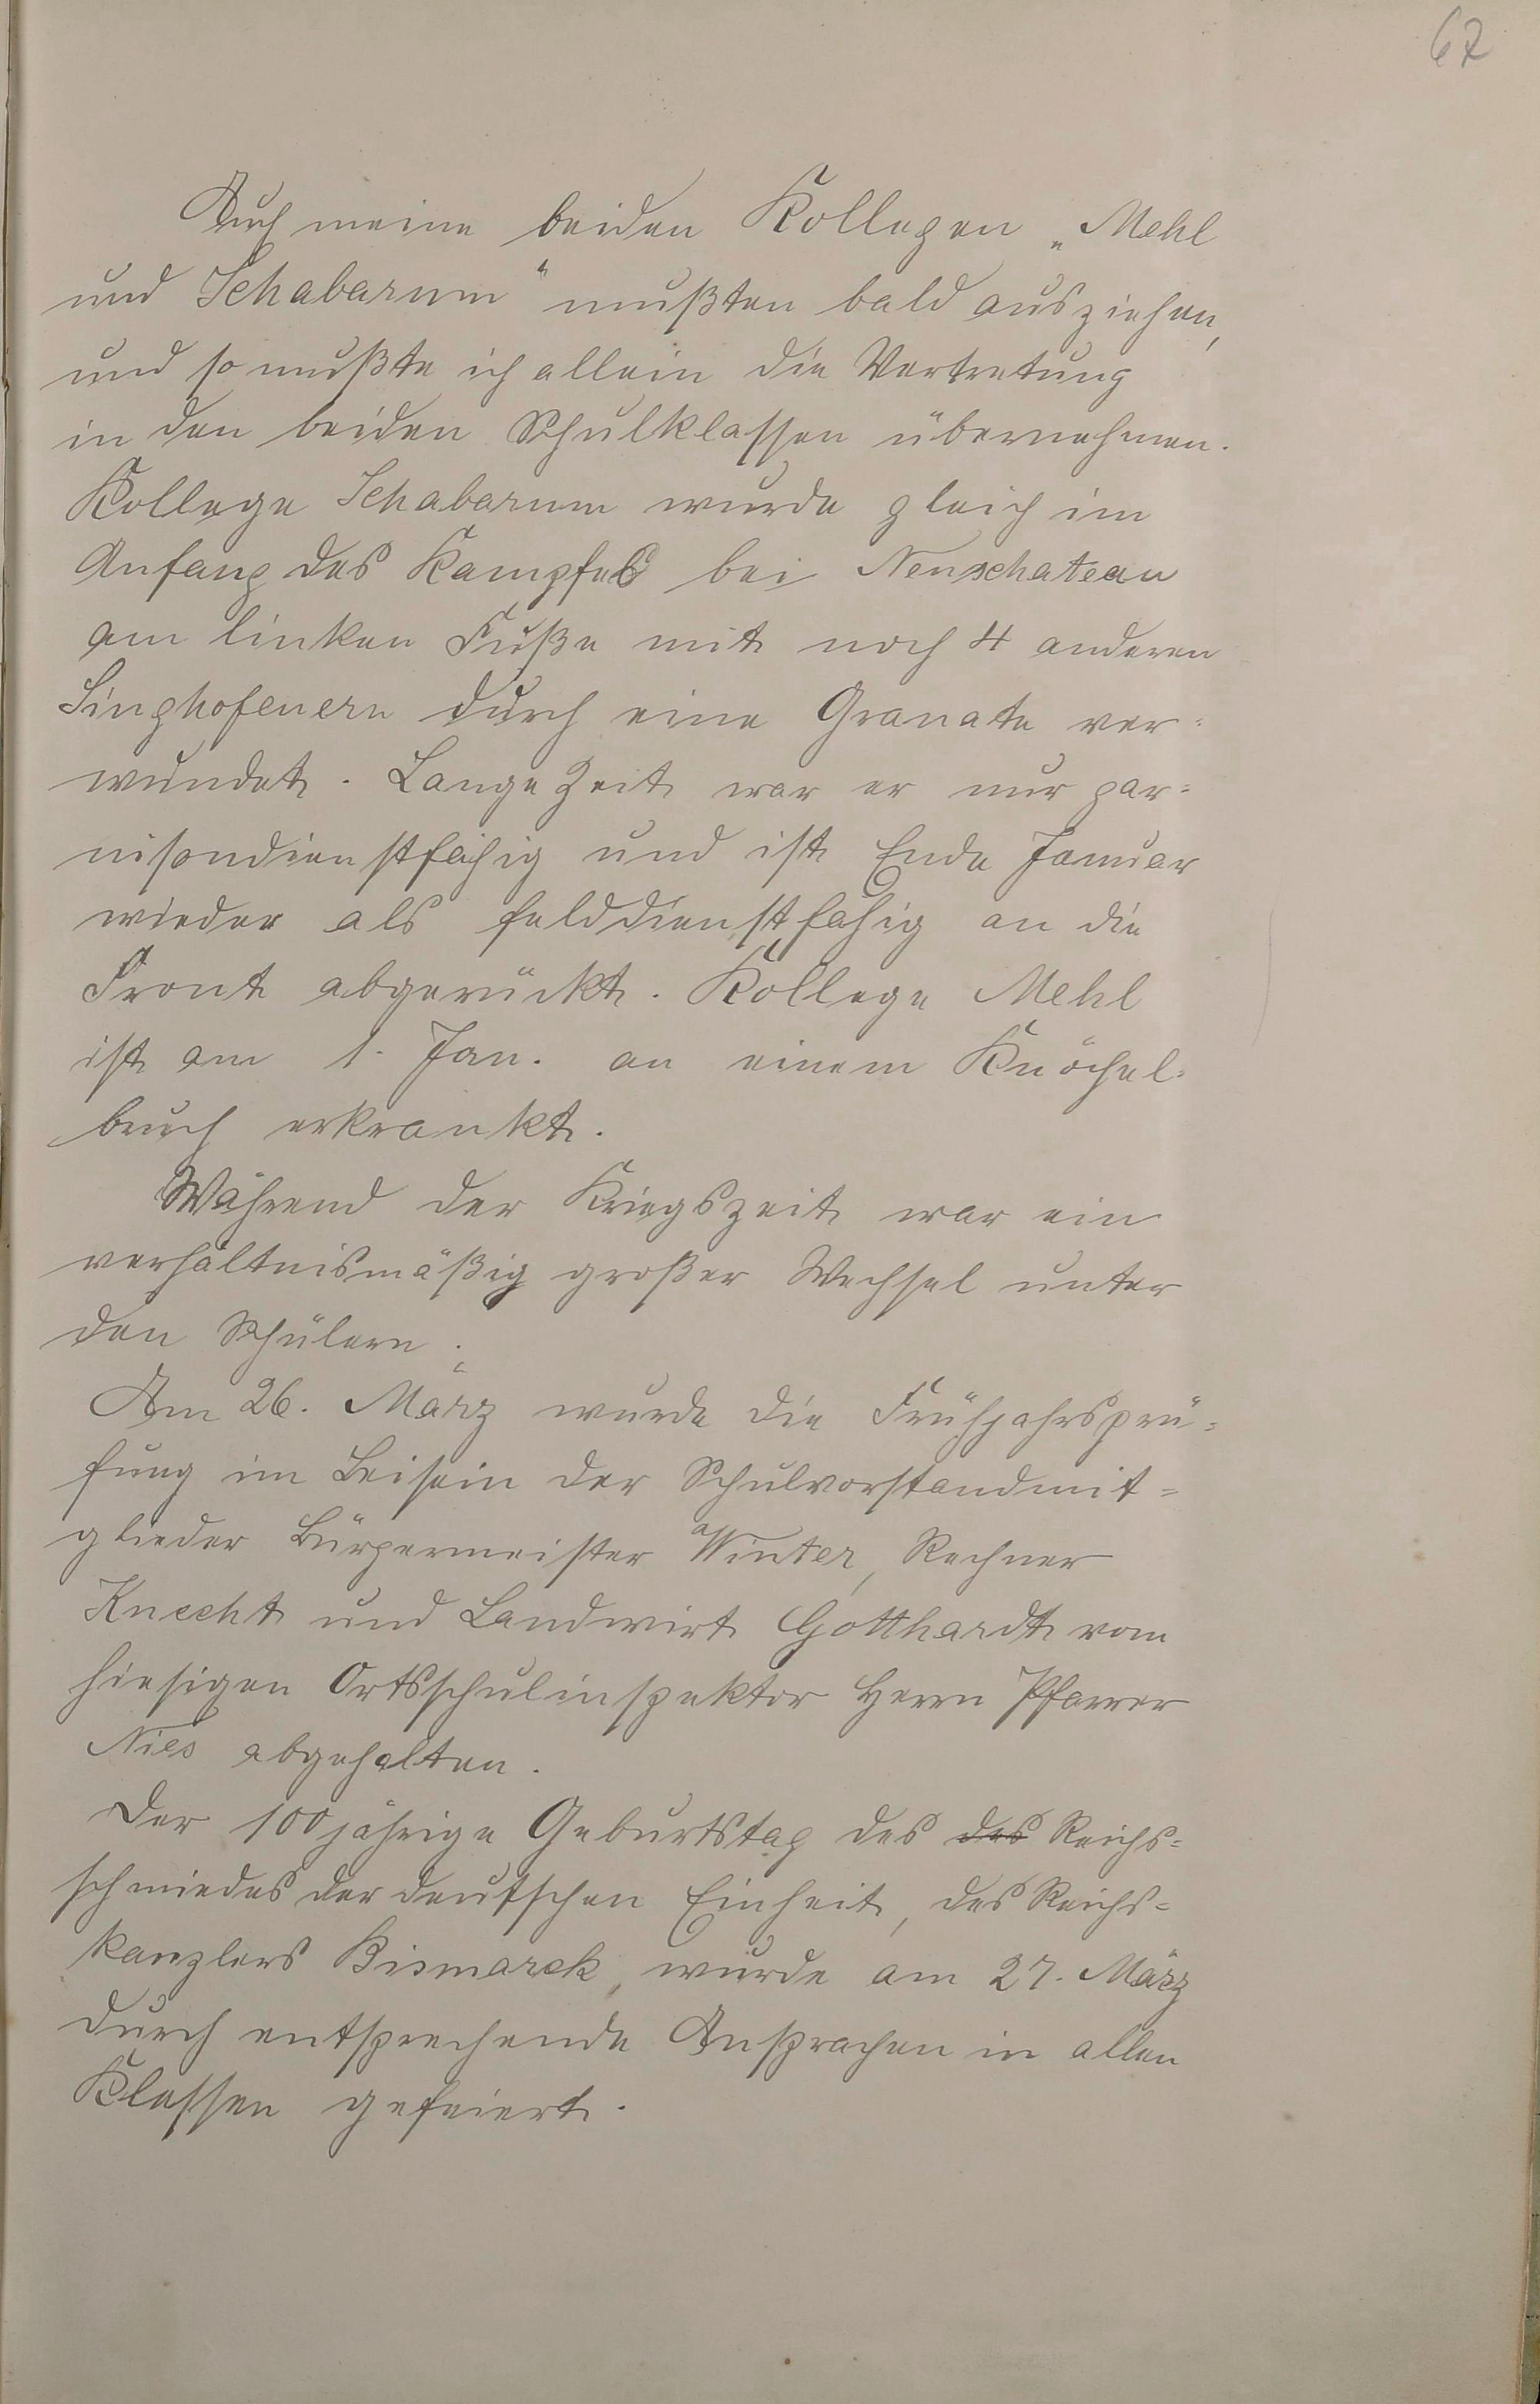 67
Auch meine beiden Kollegen „Mehl
und Schabarum“ mußten bald ausziehen,
und so mußte ich allein die Vertretung
in den beiden Schulklassen übernehmen.
Kollege Schabarum wurde gleich im
Anfang des Kampfes bei Neuschateau
am linken Fuße mit noch 4 anderen
Singhofenern durch eine Granate ver=
wundet. Lange Zeit war er nur gar=
nisondienstfähig und ist Ende Januar
wieder als felddienstfähig an die
Front abgerückt. Kollege Mehl
ist am 1. Jan. an einem Knöchel=
bruch erkrankt.
Während der Kriegszeit war ein
verhältnismäßig großer Wechsel unter
den Schülern.
Am 26. März wurde die Frühjahrsprü=
fung im Beisein der Schulvorstandmit=
glieder Bürgermeister Winter, Rechner
Knecht und Landwirt Gotthardt vom
hiesigen Ortsschulinspektor Herrn Pfarrer
Nies abgehalten.
Der 100jährige Geburtstag des des Reichs=
schmiedes der deutschen Einheit, des Reichs=
kanzlers Bismarck, wurde am 27. März
durch entsprechende Ansprachen in allen
Klassen gefeiert.